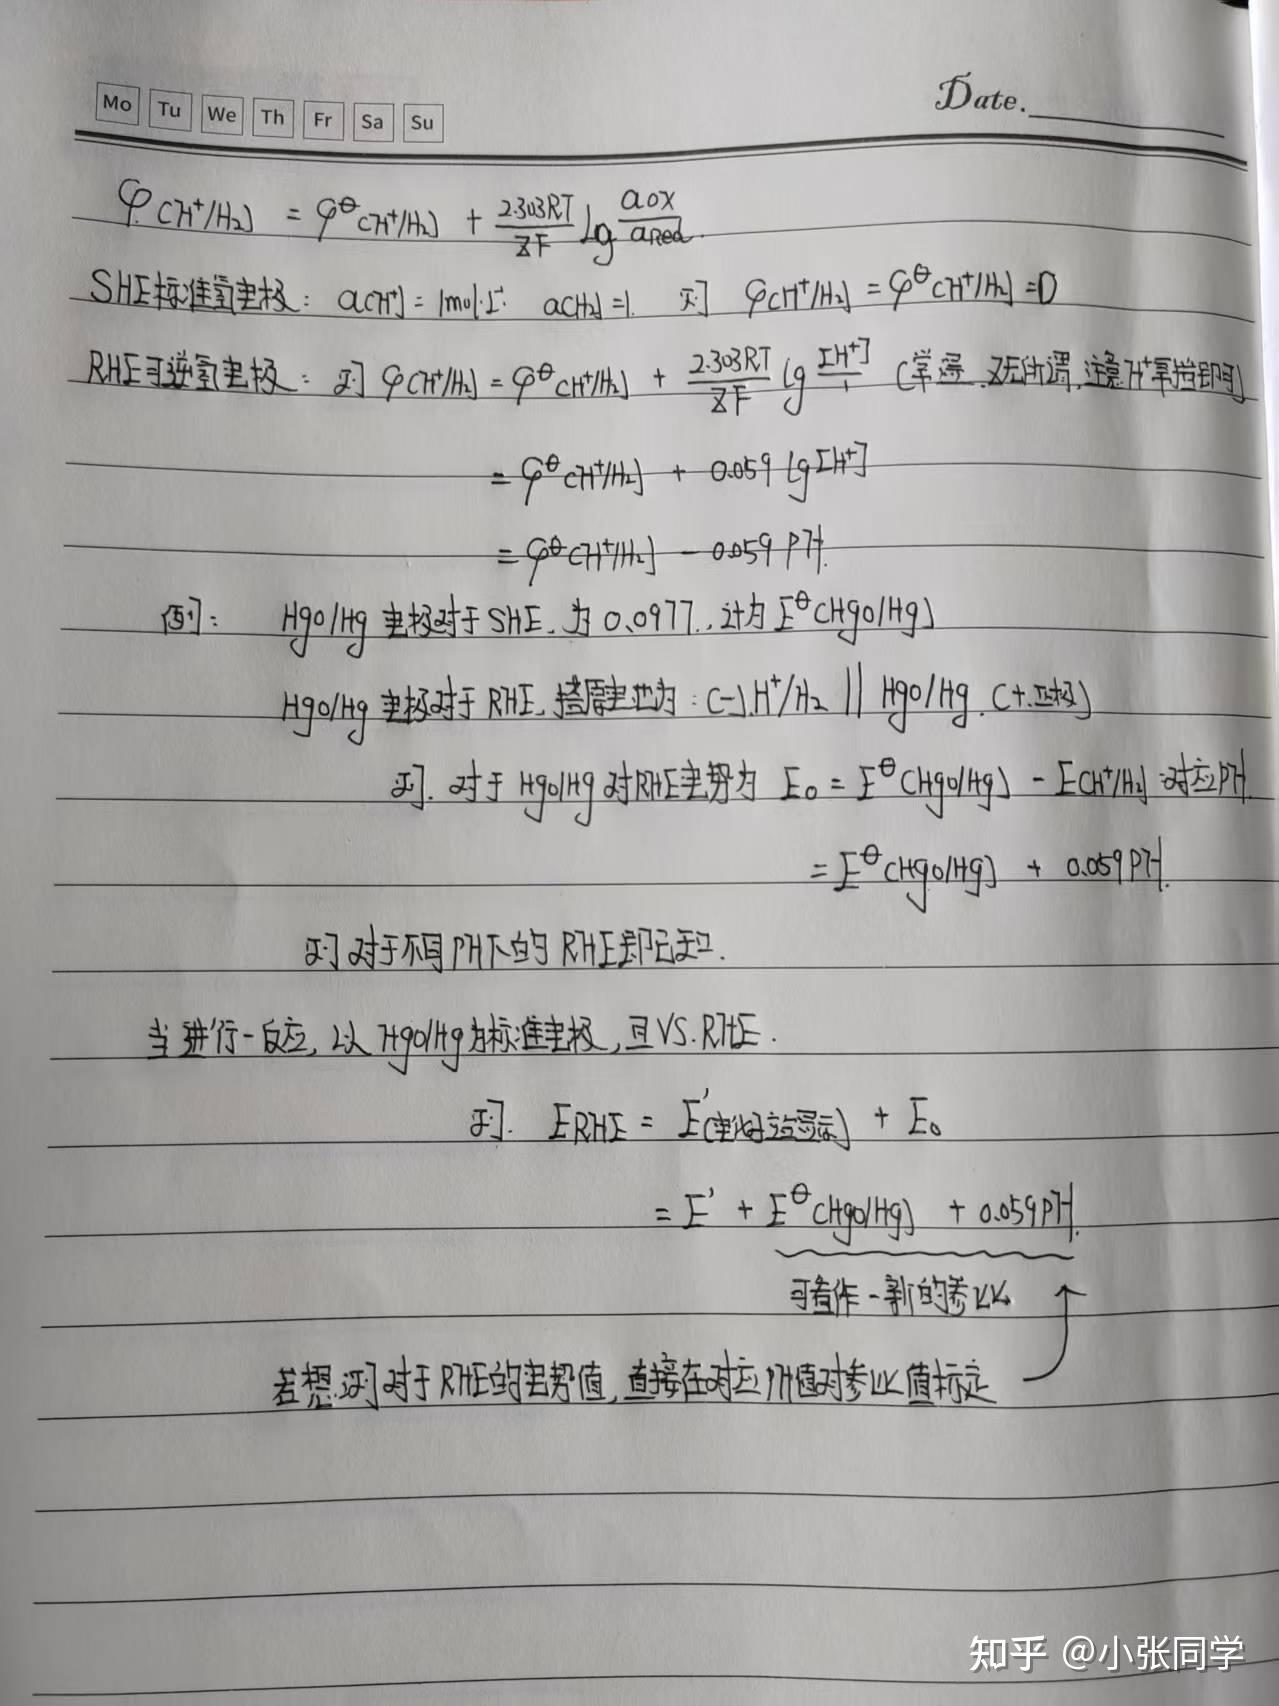 Mo Tu We Th Fr Sa Su Date.
φ(H⁺/H₂) = φ^θ(H⁺/H₂) + 2.303RT/ZF lg aox/aRed.
SHE标准氢电极: a(H⁺) = 1mol·L⁻¹ a(H₂)=1. 则 φ(H⁺/H₂) = φ^θ(H⁺/H₂) = 0
RHE可逆氢电极: 则 φ(H⁺/H₂) = φ^θ(H⁺/H₂) + 2.303RT/ZF lg [H⁺]/1 (常温, Z无所谓, 注意H⁺系数即可)
= φ^θ(H⁺/H₂) + 0.059 lg[H⁺]
= φ^θ(H⁺/H₂) - 0.059 PH.
例: HgO/Hg 电极对于 SHE. 为 0.0977., 计为 E^θ(HgO/Hg)
HgO/Hg 电极对于 RHE. 搭原电池为: (-).H⁺/H₂ || HgO/Hg. (+.正极)
则. 对于 HgO/Hg 对RHE电势为 E₀ = E^θ(HgO/Hg) - E(H⁺/H₂) 对应PH.
= E^θ(HgO/Hg) + 0.059PH.
则对于不同PH下的 RHE都已知.
当进行一反应, 以 HgO/Hg为标准电极, 且VS.RHE.
则. ERHE = E′(电化站显示) + E₀
= E′ + E^θ(HgO/Hg) + 0.059PH.
可看作一新的参比
若想测对于RHE的电势值, 直接在对应PH值对参比值标定
知乎 @小张同学